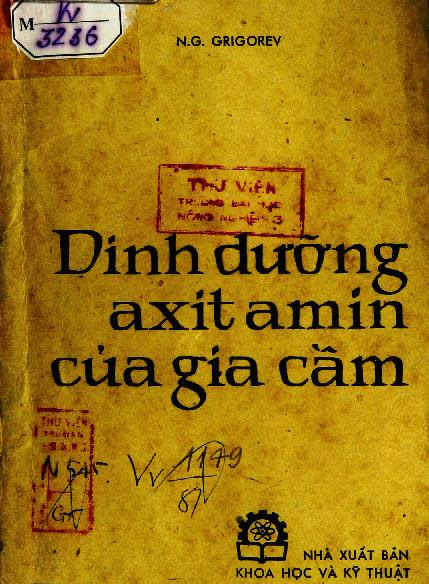 M
Kv
3236
N.G. GRIGOREV
THƯ VIỆN
TRƯỜNG ĐẠI HỌC
NÔNG NGHIỆP 3
Dinh dưỡng
axit amin
của gia cầm
THƯ VIỆN
N 545
Vv 1149
87
NHÀ XUẤT BẢN
KHOA HỌC VÀ KỸ THUẬT